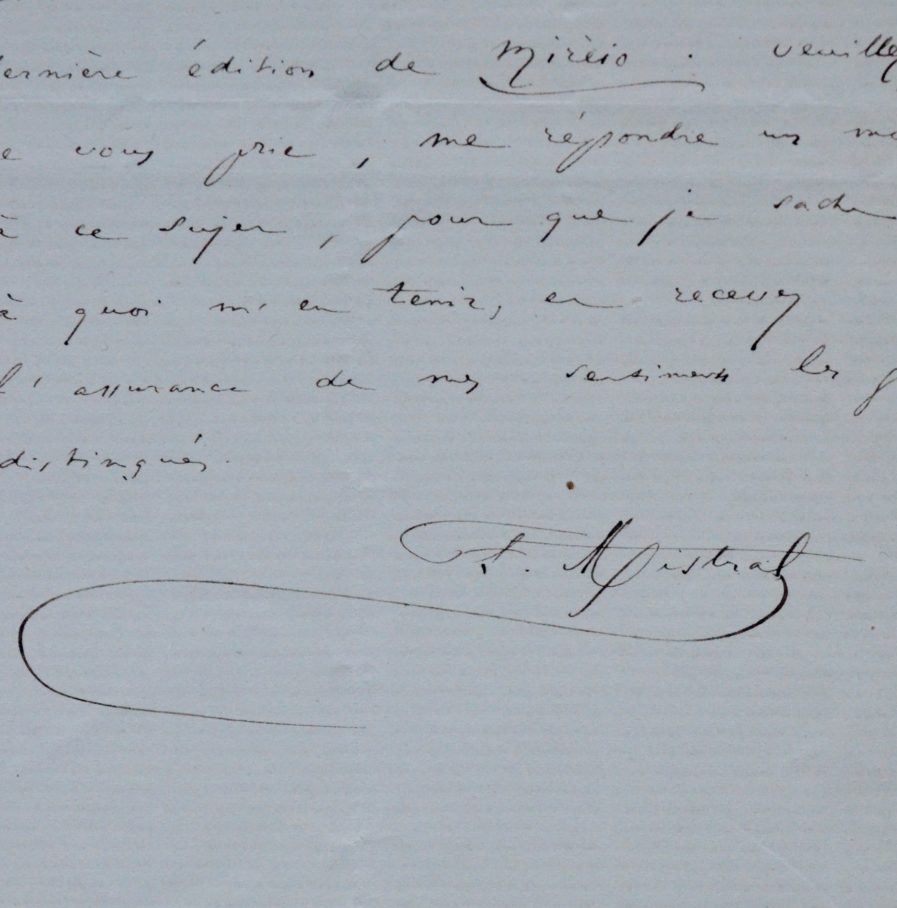 dernière édition de Mirèio. veuillez
je vous prie, me répondre un mo
à ce sujet, pour que je sache
à quoi m'en tenir, et recevez
l'assurance de mes sentiments les p
distingués.
F. Mistral